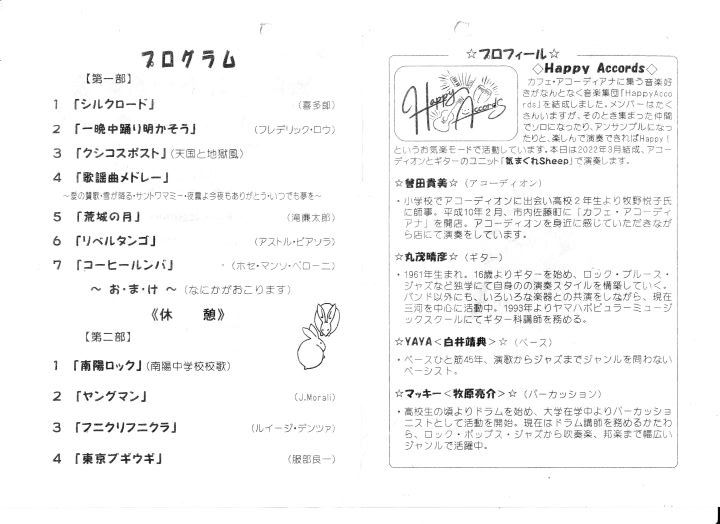 プログラム
【第一部】
1 「シルクロード」 (喜多郎)
2 「一晩中踊り明かそう」 (フレデリック・ロウ)
3 「クシコスポスト」(天国と地獄風)
4 「歌謡曲メドレー」
～愛の賛歌・雪が降る・サントワマミー・夜霧よ今夜もありがとう・いつでも夢を～
5 「荒城の月」 (滝廉太郎)
6 「リベルタンゴ」 (アストル・ピアソラ)
7 「コーヒールンバ」 (ホセ・マンソ・ペローニ)
～ お・ま・け ～ (なにかがおこります)
《休 憩》
【第二部】
1 「南陽ロック」(南陽中学校校歌)
2 「ヤングマン」 (J.Morali)
3 「フニクリフニクラ」 (ルイージ・デンツァ)
4 「東京ブギウギ」 (服部良一)
☆プロフィール☆
◇Happy Accords◇
Happy Accords
カフェ・アコーディアナに集う音楽好
きがなんとなく音楽集団「HappyAcco
rds」を結成しました。メンバーはたく
さんいますが、そのとき集まった仲間
でソロになったり、アンサンブルになっ
たりと、楽しんで演奏できればHappy!
というお気楽モードで活動しています。本日は2022年3月結成、アコー
ディオンとギターのユニット「気まぐれSheep」で演奏します。
☆誉田貴美☆(アコーディオン)
・小学校でアコーディオンに出会い高校2年生より牧野悦子氏
に師事。平成10年2月、市内佐藤町に「カフェ・アコーディ
アナ」を開店。アコーディオンを身近に感じていただきなが
ら店にて演奏をしています。
☆丸茂晴彦☆(ギター)
・1961年生まれ。16歳よりギターを始め、ロック・ブルース・
ジャズなど独学にて自身のの演奏スタイルを構築していく。
バンド以外にも、いろいろな楽器との共演をしながら、現在
三河を中心に活動中。1993年よりヤマハポピュラーミュージ
ックスクールにてギター科講師を務める。
☆YAYA＜白井靖典＞☆(ベース)
・ベースひと筋45年、演歌からジャズまでジャンルを問わない
ベーシスト。
☆マッキー＜牧原亮介＞☆(パーカッション)
・高校生の頃よりドラムを始め、大学在学中よりパーカッショ
ニストとして活動を開始。現在はドラム講師を務めるかたわ
ら、ロック・ポップス・ジャズから吹奏楽、邦楽まで幅広い
ジャンルで活躍中。